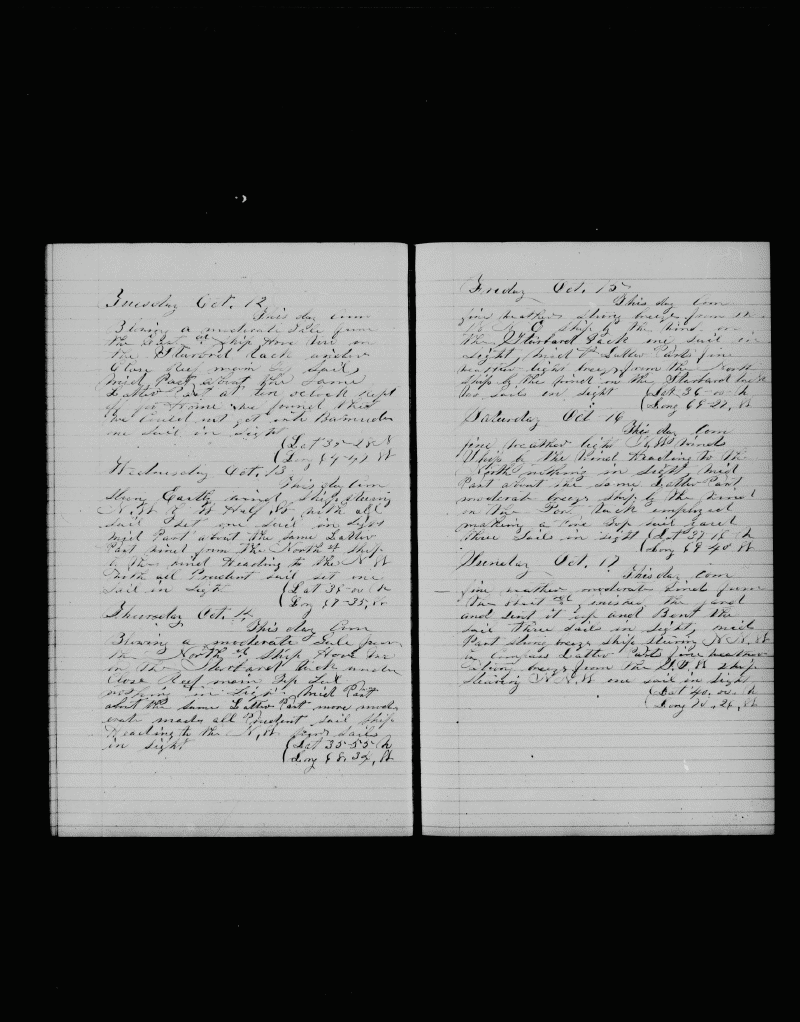 Tuesday Oct. 12
This day com
Blowing a moderate Gale from
the East ship Hove here on
the Starbord tack under
Close Reef main Top sail
Mid Part about the same
Latter Part at ten oclock kept
of for Home we found that
we could not get into Bamuda
one sail in sight
(Lat 35-28 N
(Long 67-47 W
Wednesday Oct. 13
This day com
Strong wind Ship stearing
N. W. Half W. with all
sail set one sail in sight
Mid Part about the same Latter
Part wind from the North ship
by the wind Heading to the N W
with all Prudent sail set one
sail in sight (Lat 35-00 N
(Long 67-35, W
Thursday Oct. 14
This day Com
Blowing a moderate Gale from
the North ship Hove too
on the Starbord tack under
Close Reef main Top sail
nothing in sight Mid Part
about the same Latter Part more mod-
erate made all Prudent sail ship
Heading to the N, W. sails
in sight (Lat 35-55 N
(Long 68. 34, W
Friday Oct. 15
This day Com
fine weather strong breeze from the
ship by the wind on
the Starbord Tack one sail in
sight, Mid & Latter Parts fine
weather light breeze from the North
Ship by the wind on the Starbord tack
sails in sight (Lat 36-00 N
(Long 69-22, W
Saturday Oct 16
This day Com
fine weather light winds
Ship by the Wind Heading to the
North nothing in Sight, Mid
Part about the same Latter Part
moderate breeze ship by the wind
on the Port tack employed
making a fore Top sail
three sails in sight (Lat 37 18 N
(Long 69 40 W
Sunday Oct. 17
This day Com
fine weather moderate wind from
the finished the yard
and sent it up and Bent the
sail three sails in sight, mid
Part strong breeze ship stearing N. N. W
by Compass Latter Part fine weather
strong breeze from the S. W ship
stearing N. N. W one sail in sight
(Lat 40. 00. N
(Long 70. 24, W